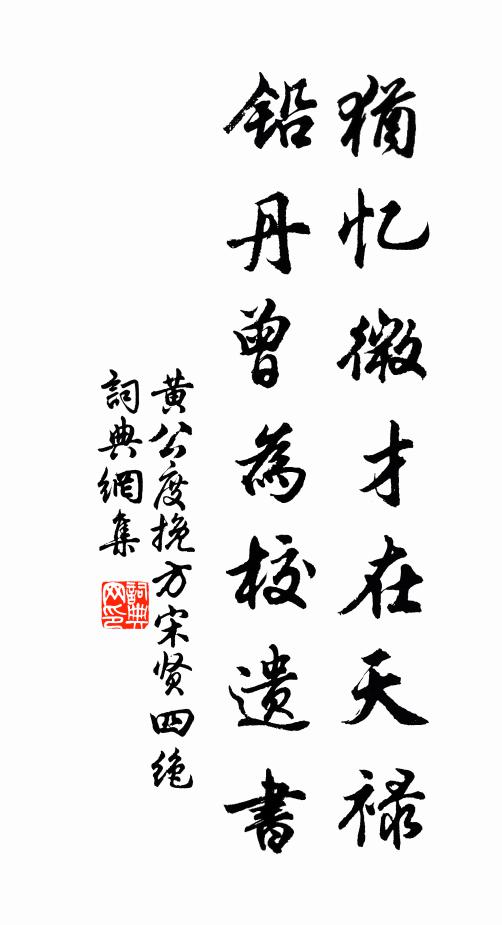 猶忆微才在天禄
铅丹曾為校遗書
黄公度挽方宋贤四绝
詞典網集
詞典网印